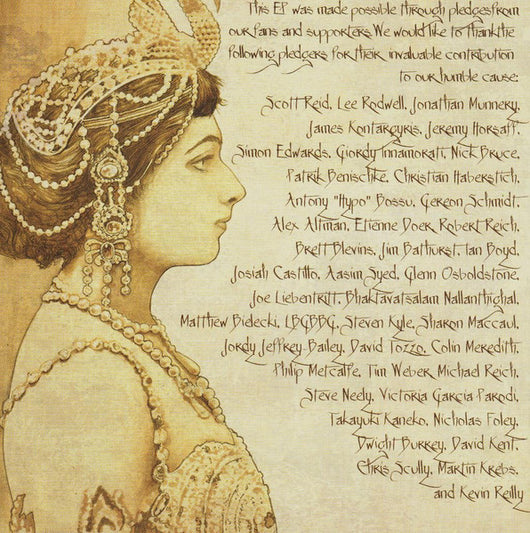 This EP was made possible through pledges from
our fans and supporters. We would like to thank the
following pledgers for their invaluable contribution
to our humble cause:
Scott Reid, Lee Rodwell, Jonathan Munnery,
James Kontargyris, Jeremy Horsaff,
Simon Edwards, Giordy Innamorati, Nick Bruce,
Patrik Benischke, Christian Haberstich,
Antony "Hypo" Bossu, Gereon Schmidt,
Alex Altman, Etienne Doer, Robert Reich,
Brett Blevins, Jim Bathurst, Ian Boyd,
Josiah Castillo, Aasim Syed, Glenn Osboldstone,
Joe Liebentritt, Bhaktavatsalam Nallanthighal,
Matthew Bidecki, LBGBBG, Steven Kyle, Sharon Maccaul,
Jordy Jeffrey-Bailey, David Tozzo, Colin Meredith,
Philip Metcalfe, Tim Weber, Michael Reich,
Steve Neely, Victoria Garcia Parodi,
Takayuki Kaneko, Nicholas Foley,
Dwight Burkey, David Kent,
Chris Scully, Martin Krebs,
and Kevin Reilly